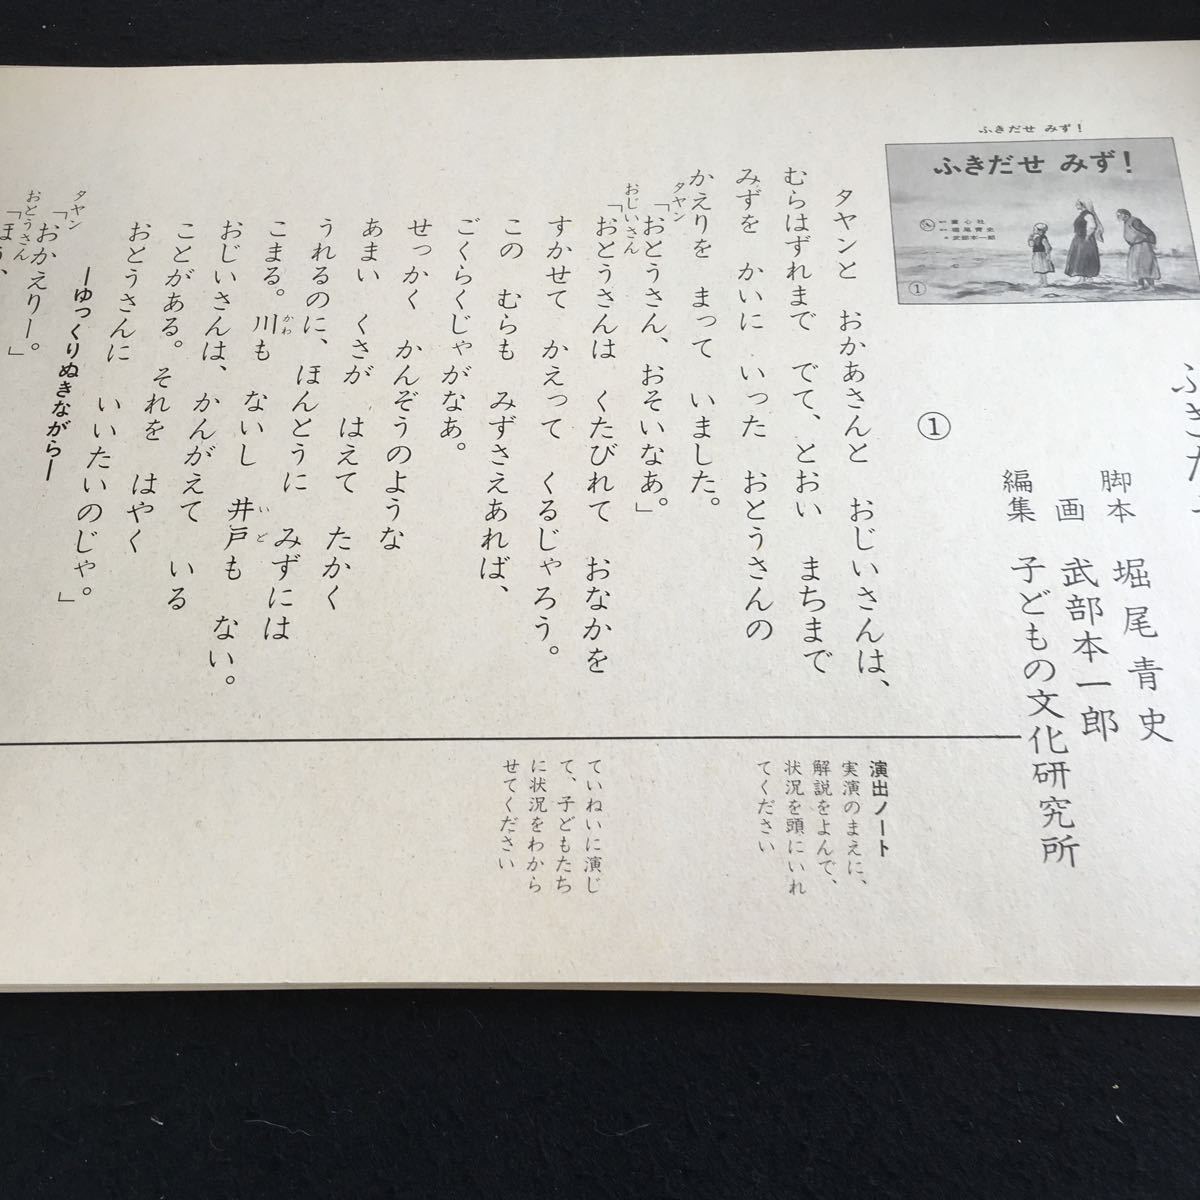 ふきだせ みず！
ふきだせ みず！
童心社
堀尾青史
武部本一郎
①
ふきだ
脚本 堀尾青史
画 武部本一郎
編集 子どもの文化研究所
①
タヤンと おかあさんと おじいさんは、
むらはずれまで でて、とおい まちまで
みずを かいに いった おとうさんの
かえりを まって いました。
タヤン
「おとうさん、おそいなあ。」
おじいさん
「おとうさんは くたびれて おなかを
すかせて かえって くるじゃろう。
この むらも みずさえあれば、
ごくらくじゃがなあ。
せっかく かんぞうのような
あまい くさが はえて たかく
うれるのに、ほんとうに みずには
こまる。川も ないし 井戸も ない。
かわ
いど
おじいさんは、かんがえて いる
ことがある。それを はやく
おとうさんに いいたいのじゃ。」
―ゆっくりぬきながら―
タヤン
「おかえりー。」
おとうさん
「ほう、
演出ノート
実演のまえに、
解説をよんで、
状況を頭にいれ
てください
ていねいに演じ
て、子どもたち
に状況をわから
せてください